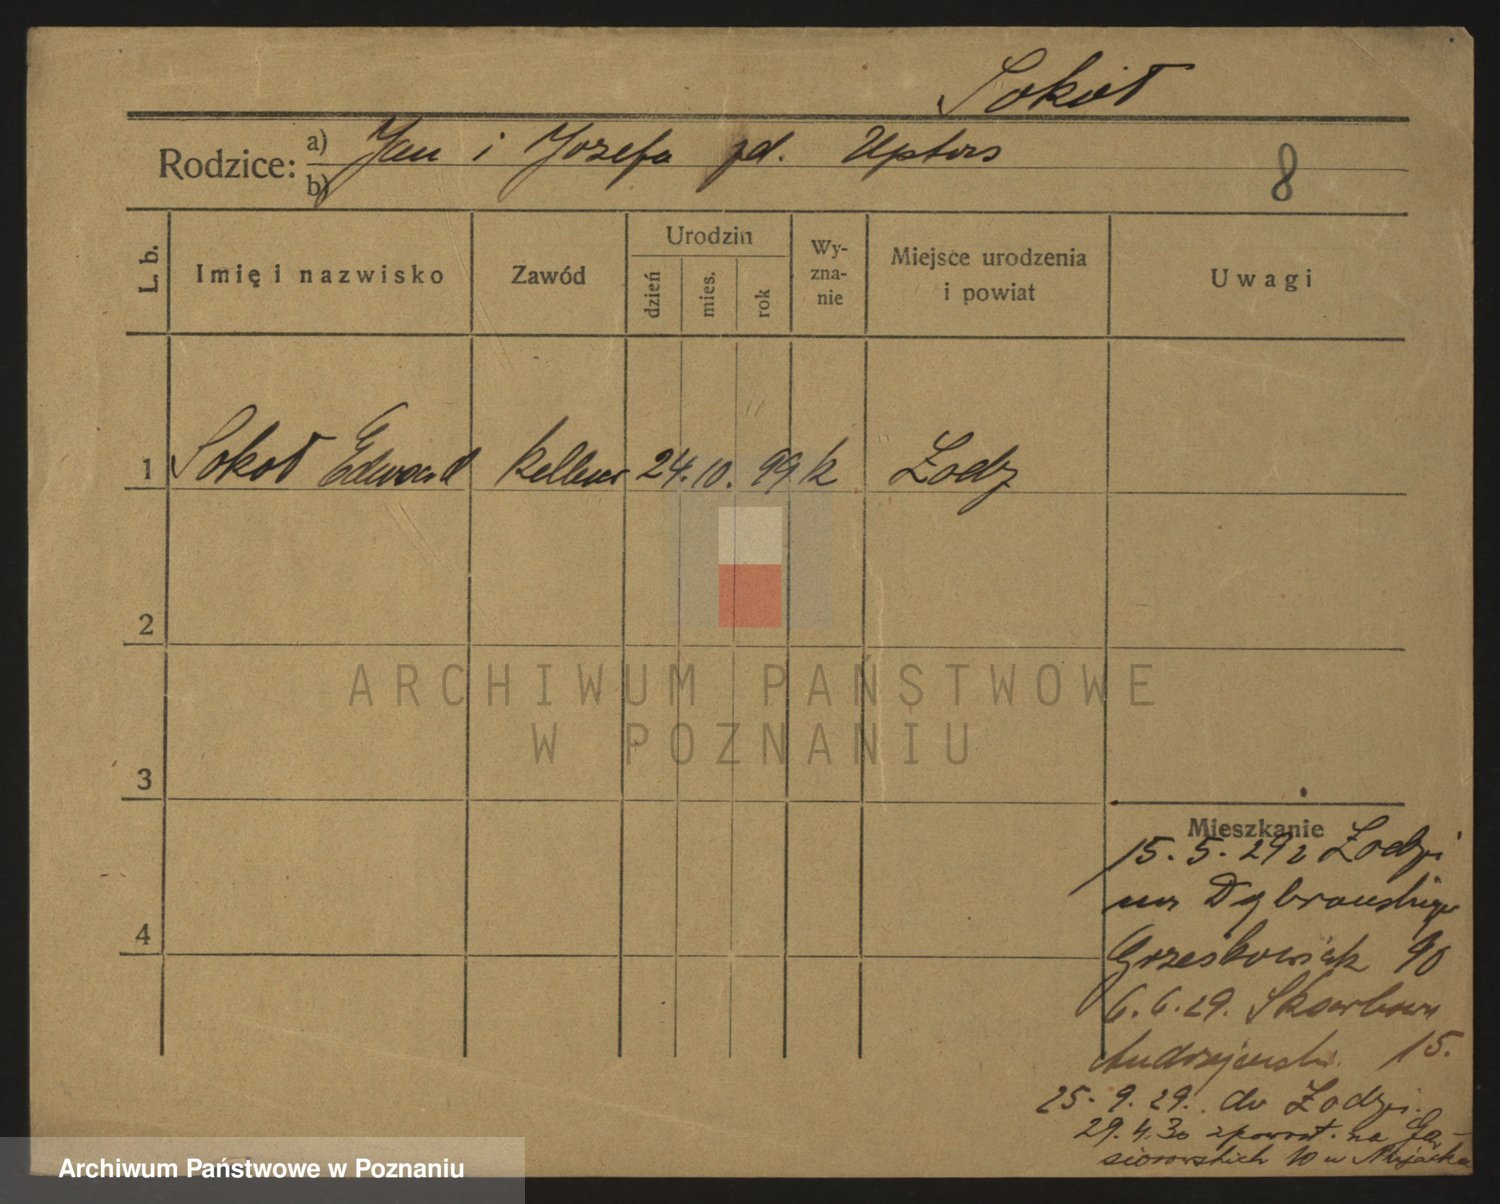 Sokół
Rodzice: a) Jan i Jozefa zd.
b)
8
L. b.
Imię i nazwisko
Zawód
Urodzin
dzień
mies.
rok
Wy-
zna-
nie
Miejsce urodzenia
i powiat
Uwagi
1 Sokoł Edward kellner 24. 10. 99 k Łodz
2
3
4
ARCHIWUM PAŃSTWOWE
W POZNANIU
Mieszkanie
15. 5. 29 z Łodzi
na Dąbrowskiego
Grześkowiak 90
6. 6. 29. Skarbowa
Andrzejewski 15.
25. 9. 29. do Łodzi.
29. 4. 30 zpowrot. na Gą-
siorowskich 10 u
Archiwum Państwowe w Poznaniu